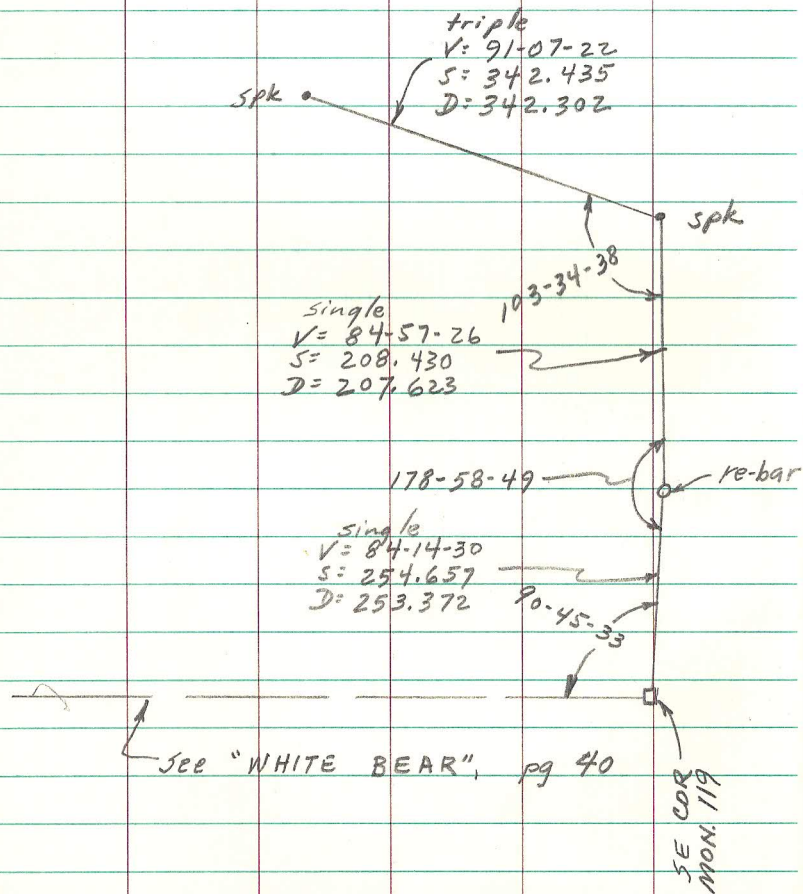 triple
V= 91-07-22
S= 342.435
D= 342.302
spk
spk
103-34-38
single
V= 84-57-26
S= 208.430
D= 207.623
178-58-49
re-bar
single
V= 84-14-30
S= 254.657
D= 253.372
90-45-33
see "WHITE BEAR", pg 40
SE COR
MON. 119